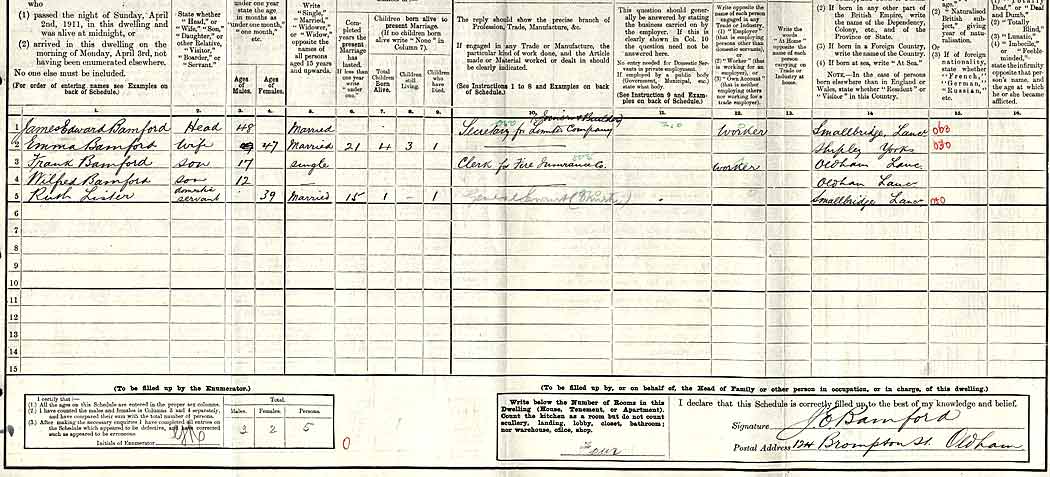 who
(1) passed the night of Sunday, April
2nd, 1911, in this dwelling and
was alive at midnight, or
(2) arrived in this dwelling on the
morning of Monday, April 3rd, not
having been enumerated elsewhere.
No one else must be included.
(For order of entering names see Examples on
back of Schedule.)
State whether
"Head," or
"Wife," "Son,"
"Daughter," or
other Relative,
"Visitor,"
"Boarder," or
"Servant."
under one year
state the age
in months as
"under one month,"
"one month,"
etc.
Ages
of
Males.
Ages
of
Females.
Write
"Single,"
"Married,"
"Widower,"
or "Widow,"
opposite the
names of
all persons
aged 15 years
and upwards.
Completed
years the
present
Marriage
has
lasted.
If less than
one year
write
"under
one."
Children born alive to
present Marriage.
(If no children born
alive write "None" in
Column 7).
Total
Children
Born
Alive.
Children
still
Living.
Children
who
have
Died.
The reply should show the precise branch of
Profession, Trade, Manufacture, &c.
If engaged in any Trade or Manufacture, the
particular kind of work done, and the Article
made or Material worked or dealt in should
be clearly indicated.
(See Instructions 1 to 8 and Examples on back
of Schedule.)
This question should generally
be answered by stating
the business carried on by
the employer. If this is
clearly shown in Col. 10
the question need not be
answered here.
No entry needed for Domestic Servants
in private employment.
If employed by a public body
(Government, Municipal, etc.)
state what body.
(See Instruction 9 and Examples
on back of Schedule.)
Write opposite the
name of each person
engaged in any
Trade or Industry,
(1) "Employer"
(that is employing
persons other than
domestic servants),
or
(2) "Worker" (that
is working for an
employer), or
(3) "Own Account"
(that is neither
employing others
nor working for a
trade employer).
Write the
words
"At Home"
opposite the
name of each
person
carrying on
Trade or
Industry at
home.
(2) If born in any other part of
the British Empire, write
the name of the Dependency,
Colony, etc., and of the
Province or State.
(3) If born in a Foreign Country,
write the name of the Country.
(4) If born at sea, write "At Sea."
NOTE.—In the case of persons
born elsewhere than in England or
Wales, state whether "Resident" or
"Visitor" in this Country.
1. 2. 3. 4. 5. 6. 7. 8. 9. 10. 11. 12. 13. 14. 15. 16.
1 James Edward Bamford Head 48 Married Secretary for Limited Company Worker Smallbridge, Lancs 063
2 Emma Bamford Wife 47 Married 21 4 3 1 Shipley Yorks 030
3 Frank Bamford son 17 single Clerk for Fire Insurance Co. worker Oldham Lanc.
4 Wilfred Bamford son 12 Oldham Lanc
5 Ruth Lister domestic servant 39 Married 15 1 – 1 General Servant (Domestic) Smallbridge Lanc
6
7
8
9
10
11
12
13
14
15
(To be filled up by the Enumerator.)
I certify that:—
(1.) All the ages on this Schedule are entered in the proper sex columns.
(2.) I have counted the males and females in Columns 3 and 4 separately,
and have compared their sum with the total number of persons.
(3.) After making the necessary enquiries I have completed all entries on
the Schedule which appeared to be defective, and have corrected
such as appeared to be erroneous.
Initials of Enumerator
Total.
Males. Females. Persons.
3 2 5
0
(To be filled up by, or on behalf of, the Head of Family or other person in occupation, or in charge, of this dwelling.)
Write below the Number of Rooms in this
Dwelling (House, Tenement, or Apartment).
Count the kitchen as a room but do not count
scullery, landing, lobby, closet, bathroom;
nor warehouse, office, shop.
Four
I declare that this Schedule is correctly filled up to the best of my knowledge and belief.
Signature J E Bamford
Postal Address 124 Brompton St. Oldham